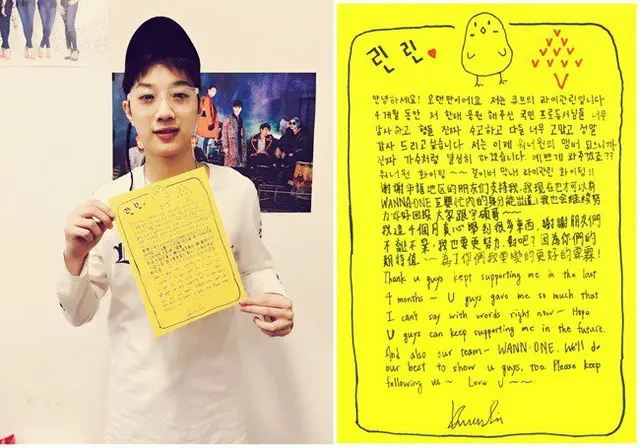 린린
안녕하세요! 오랜만이에요 저는 큐브의 라이관린입니다
4개월 동안 저 한테 응원 해주신 국민 프로듀서님들 너무
감사하고 형들 진짜 수고하고 다들 너무 고맙고 정말
감사 드리고 싶습니다 저는 이제 워너원의 멤버 됐으니까
진짜 가수처럼 열심히 하겠습니다 예쁘게 봐주겠죠??
워너원 화이팅 ~~ 걸어버 막내 라이관린 화이팅!!
謝謝 地区的朋友们支持我,我現在也才可以有
WANNA·ONE 忙内的身分能出道,我也会继续努
力 好回報 大家跟守 哥 ~~
我這4個月真心學到很多東西,謝謝朋友們
不離不棄,我也要更努力,對吧? 因為你們的
期待值~~ 為了你們我要變的更好的靈魂!
Thank u guys kept supporting me in the last
4 months ~ U guys gave me so much that
I can't say with words right now ~ Hope
U guys can keep supporting me in the future.
And also our team ~ WANN·ONE. We'll do
our best to show u guys, too. Please keep
following us ~ Love U ~~